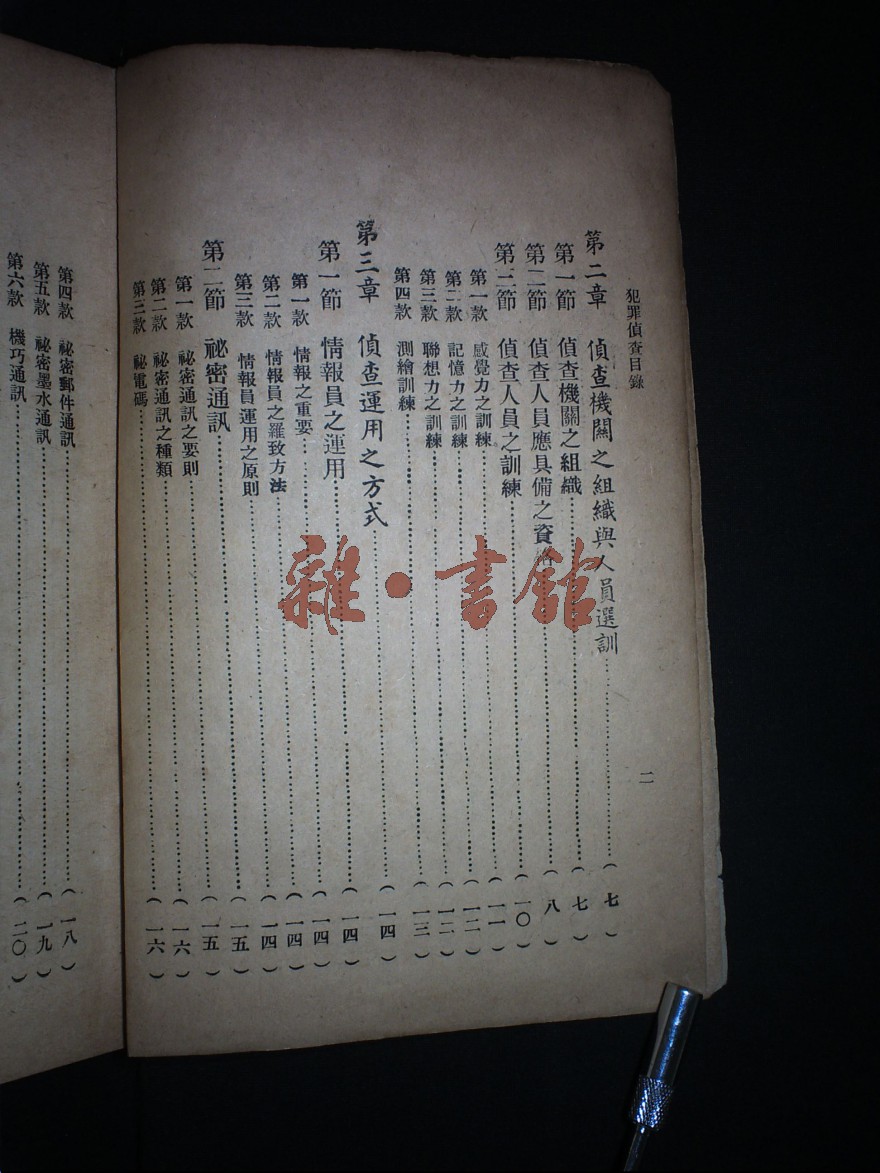 犯罪偵查目錄
二
第二章 偵查機關之組織與人員選訓……（七）
第一節 偵查機關之組織……（七）
第二節 偵查人員應具備之資格……（八）
第三節 偵查人員之訓練……（一〇）
第一款 感覺力之訓練……（一一）
第二款 記憶力之訓練……（一二）
第三款 聯想力之訓練……（一二）
第四款 測繪訓練……（一三）
第三章 偵查運用之方式……（一四）
第一節 情報員之運用……（一四）
第一款 情報之重要……（一四）
第二款 情報員之羅致方法……（一四）
第三款 情報員運用之原則……（一五）
第二節 祕密通訊……（一五）
第一款 祕密通訊之要則……（一六）
第二款 祕密通訊之種類
第三款 祕電碼……（一六）
第四款 祕密郵件通訊……（一八）
第五款 祕密墨水通訊……（一九）
第六款 機巧通訊……（二〇）
雜·書館